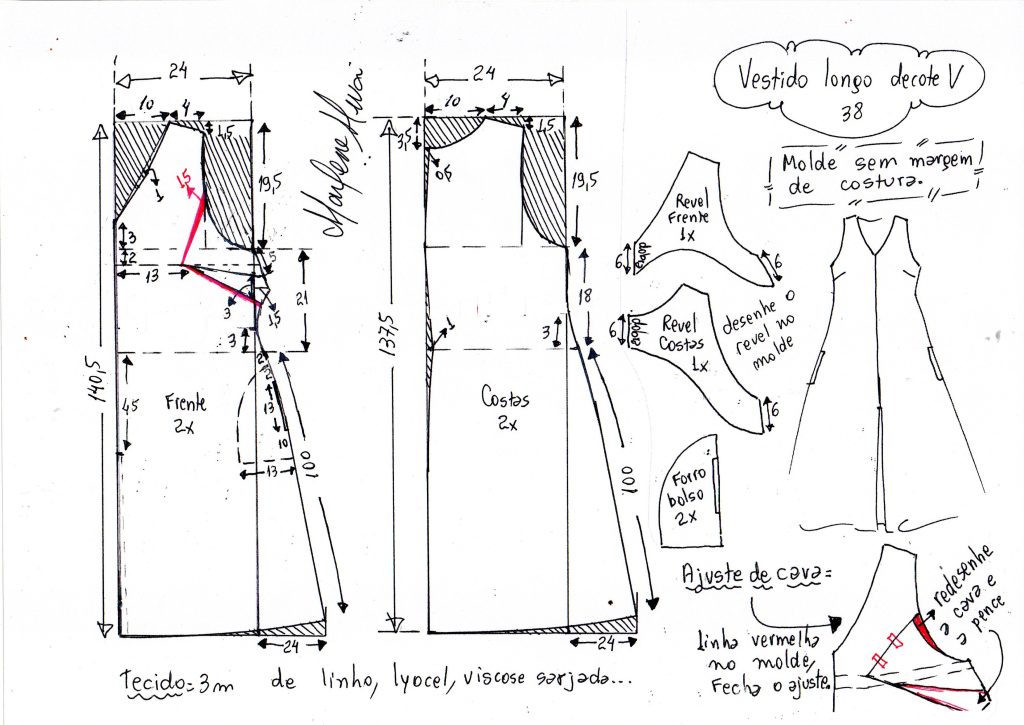 Vestido longo decote V
38
Molde sem margem
de costura.
Marlene Mukai
24
10
4
1,5
1
1,5
19,5
3
2
13
5
3
1,5
21
3
2
2
140,5
45
Frente
2x
13
10
13
100
24
24
10
4
1,5
3,5
0,5
19,5
18
3
1
137,5
Costas
2x
100
24
Revel
Frente
1x
6
dobra
6
Revel
Costas
1x
6
dobra
6
desenhe o
revel no
molde
Forro
bolso
2x
Ajuste de cava=
Linha vermelha
no molde,
Fecha o ajuste.
redesenhe
a cava e
a pence
Tecido=3m de linho, lyocel, viscose sarjada...